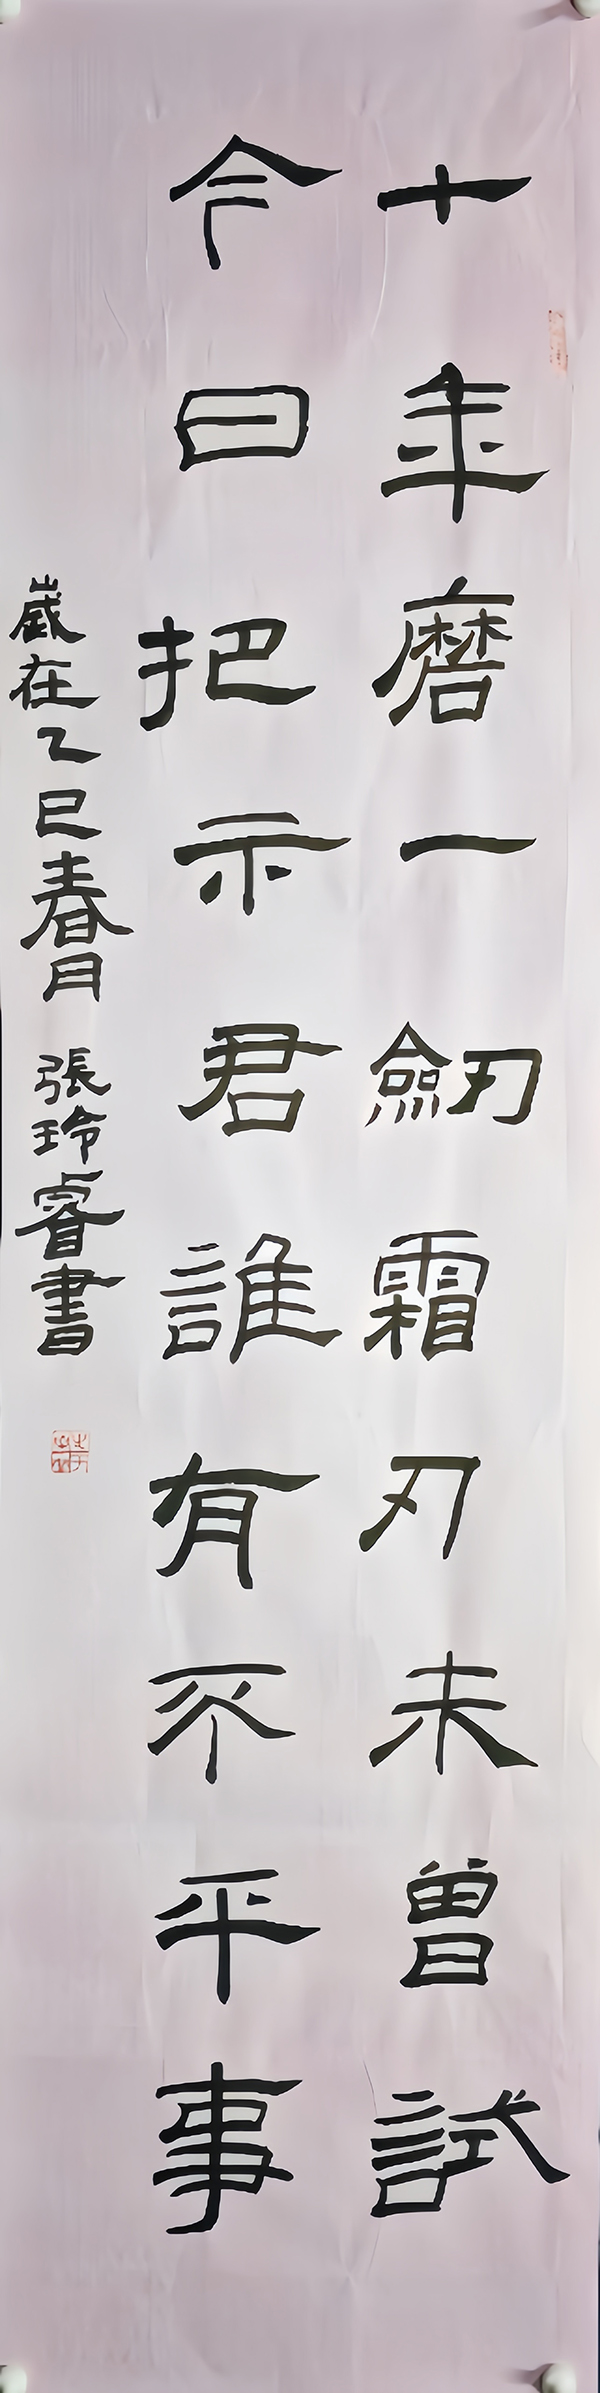 十年磨一劒霜刃未曾試
今日把示君誰有不平事
歲在乙巳春月 張玲睿書